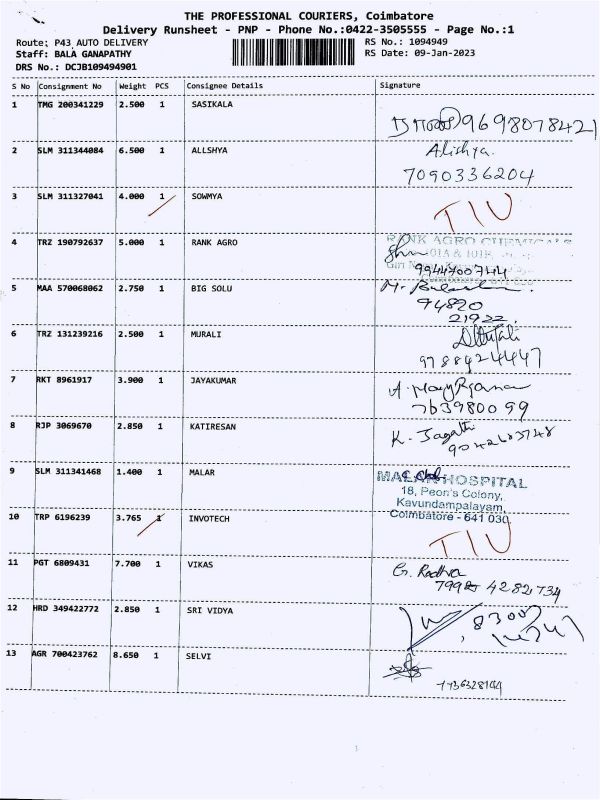 THE PROFESSIONAL COURIERS, Coimbatore
Delivery Runsheet - PNP - Phone No.:0422-3505555 - Page No.:1
Route: P43 AUTO DELIVERY RS No.: 1094949
Staff: BALA GANAPATHY RS Date: 09-Jan-2023
DRS No.: DCJB109494901
S No Consignment No Weight PCS Consignee Details Signature
1 TMG 200341229 2.500 1 SASIKALA
9698078421
2 SLM 311344084 6.500 1 ALLSHYA Alishya.
7090336204
3 SLM 311327041 4.000 1 SOWMYA TIU
4 TRZ 190792637 5.000 1 RANK AGRO RANK AGRO CHEMICALS
9944700744
5 MAA 570068062 2.750 1 BIG SOLU
94820
21922
6 TRZ 131239216 2.500 1 MURALI
9788424447
7 RKT 8961917 3.900 1 JAYAKUMAR
7639800099
8 RJP 3069670 2.850 1 KATIRESAN K. Jagathi
9042603748
9 SLM 311341468 1.400 1 MALAR MALAR HOSPITAL
18, Peon's Colony,
Kavundampalayam,
Coimbatore - 641 030.
10 TRP 6196239 3.765 1 INVOTECH TIU
11 PGT 6809431 7.700 1 VIKAS G. Radha
4282734
12 HRD 349422772 2.850 1 SRI VIDYA
83007
14741
13 AGR 700423762 8.650 1 SELVI